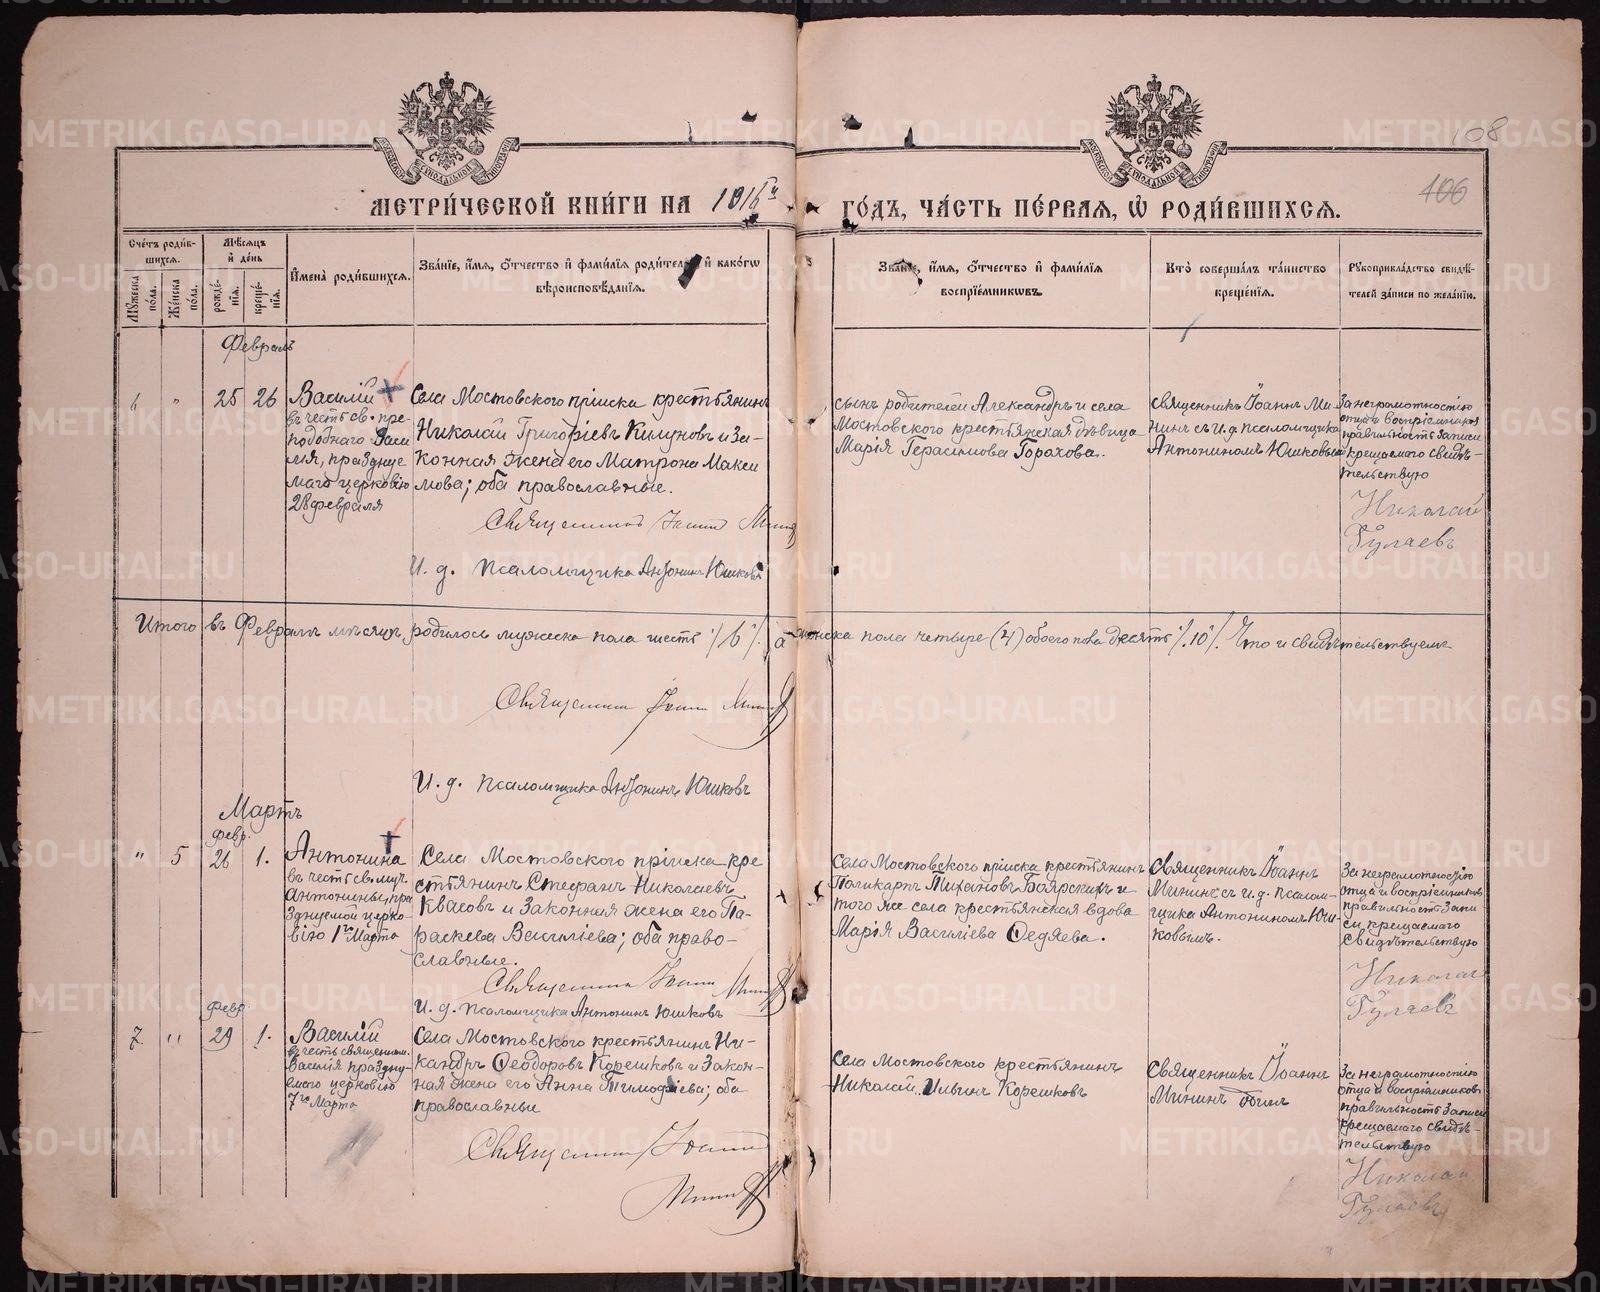 108
106
МЕТРИЧЕСКОЙ КНИГИ НА 1916 й
ГОДЪ, ЧАСТЬ ПЕРВАЯ, Ѡ РОДИВШИХСЯ.
Счетъ родившихся.
Мужеска пола.
Женска пола.
Мѣсяцъ и день
рожденія.
крещенія.
Имена родившихся.
Званіе, имя, отчество и фамилія родителей и какого
вѣроисповѣданія.
Званіе, имя, отчество и фамилія
воспріемниковъ.
Кто совершалъ таинство
крещенія.
Рукоприкладство свидѣ-
телей записи по желанію.
Февраль
6 " 25 26
Василій
въ честь св. пре-
подобнаго Васи
лія, праздуе
маго церковію
28 февраля
Села Мостовского пріиска крестьянинъ
Николай Григоріевъ Кикуновъ и За-
конная жена его Матрона Макси
мова; оба православные.
Священникъ Іоаннъ Мининъ
И. д. псаломщика Антонинъ Юшковъ
сынъ родителей Александръ и села
Мостовского крестьянская дѣвица
Марія Герасимова Горохова.
Священникъ Іоаннъ Ми
нинъ съ и. д. псаломщика
Антониномъ Юшковымъ
За неграмотностію
отца и воспріемниковъ
правильность записи
крещаемаго свидѣ-
тельствую
Николай
Гуляевъ
Итого въ Февралѣ мѣсяцѣ родилось мужеска пола шесть /6/ а женска пола четыре (4) обоего пола десять /10/. Что и свидѣтельствуемъ
Священникъ Іоаннъ Мининъ
И. д. псаломщика Антонинъ Юшковъ
Мартъ
февр.
" 5 26 1.
Антонина
въ честь св. муч.
Антонины, пра
зднуемой церко-
вію 1го Марта
Села Мостовского пріиска кре
стьянинъ Стефанъ Николаевъ
Квасовъ и законная жена его Па-
раскева Василіева; оба право-
славные.
Священникъ Іоаннъ Мининъ
И. д. псаломщика Антонинъ Юшковъ
Села Мостовского пріиска крестьянинъ
Поликарпъ Тихановъ Боярскихъ и
того же села крестьянская вдова
Марія Василіева Федяева.
Священникъ Іоаннъ
Мининъ съ и. д. псалом-
щика Антониномъ Юш-
ковымъ.
За неграмотностію
отца и воспріемниковъ
правильность запи-
си крещаемаго
свидѣтельствую
Николай
Гуляевъ
февр.
7 " 29 1.
Василій
въ честь священном.
Василія праздну-
емаго церковію
7го Марта
Села Мостовского крестьянинъ Ни-
кандръ Ѳеодоровъ Корешковъ и Закон-
ная жена его Анна Тимофіева; оба
православныи
Священникъ Іоаннъ
Мининъ
Села Мостовского крестьянинъ
Николай Ильинъ Корешковъ
Священникъ Іоаннъ
Мининъ
За неграмотностію
отца и воспріемниковъ
правильность записи
крещаемаго свидѣ-
тельствую
Николай
Гуляевъ
METRIKI.GASO-URAL.RU